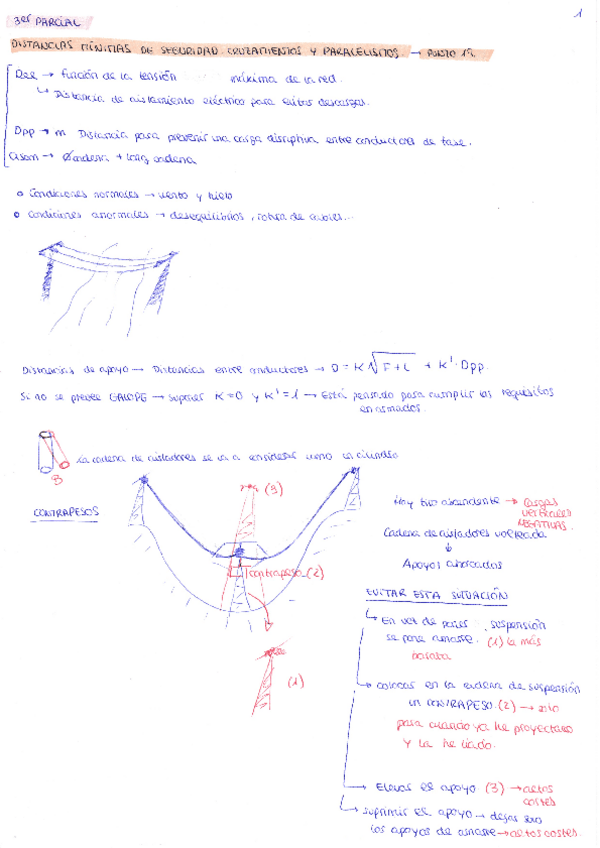 1
3er PARCIAL
DISTANCIAS MÍNIMAS DE SEGURIDAD. CRUZAMIENTOS Y PARALELISMOS. → PUNTO 19.
Del → función de la tensión máxima de la red.
↳ Distancia de aislamiento eléctrico para evitar descargas.
Dpp → m Distancia para prevenir una carga disruptiva entre conductores de fase.
→ cadena + long cadena
o Condiciones normales → viento y hielo
o Condiciones anormales → desequilibrios, rotura de cables...
Distancias de apoyo → Distancias entre conductores → D = K√F+L + K'·Dpp.
Si no se prevee GALOPE → suponer K=0 y K'=1 → Está pensado para cumplir los requisitos
en armados.
La cadena de aisladores se va a considerar como un cilindro
CONTRAPESOS
(3)
contrapeso (2)
(1)
Hay tiro ascendente → cargas
verticales
NEGATIVAS.
Cadena de aisladores volteada
↓
Apoyos ahorcados
EVITAR ESTA SITUACIÓN
↳ En vez de poner suspensión
se pone amarre. (1) la más
barata
→ colocar en la cadena de suspensión
un CONTRAPESO. (2) → sólo
para cuando ya he proyectado
y la he liado.
→ Elevar el apoyo (3) → altos
costes
↳ suprimir el apoyo → dejar solo
los apoyos de amarre → altos costes.